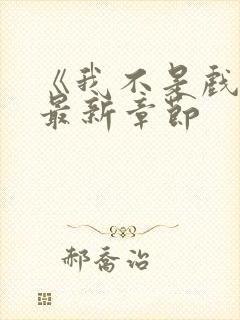 《我不是戲
最新章節
郝喬治